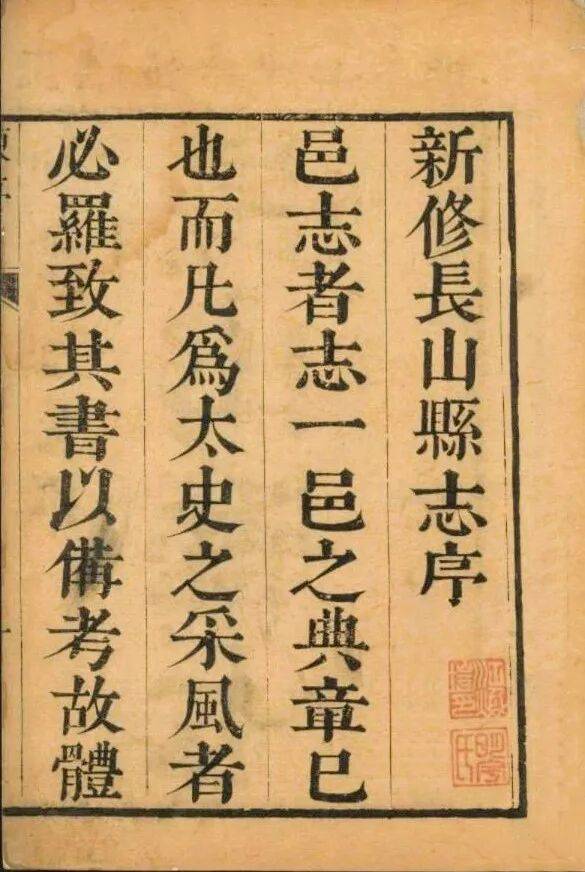 新修長山縣志序
邑志者志一邑之典章已
也而凡爲太史之采風者
必羅致其書以備考故體